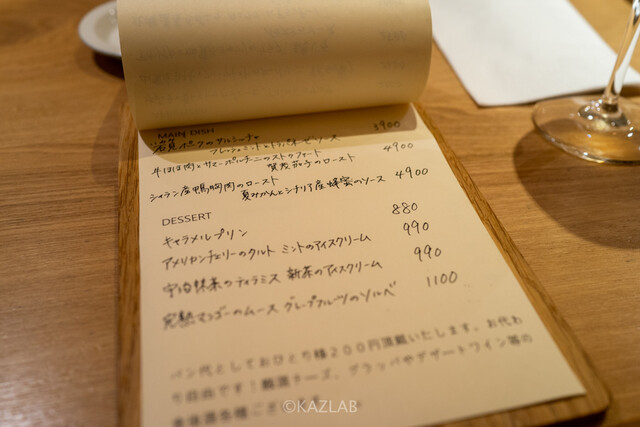 MAIN DISH
岩賀ポークのサルシーチャ 3900
フレッシュミントとトラパネーゼソース
牛ほほ肉とサマーポルチーニのストゥファート 4900
賀茂茄子のロースト
シャラン産鴨胸肉のロースト 4900
夏みかんとシチリア産蜂蜜のソース
DESSERT
キャラメルプリン 880
アメリカンチェリーのタルト ミントのアイスクリーム 990
宇治抹茶のティラミス 新茶のアイスクリーム 990
完熟マンゴーのムース グレープフルーツのソルベ 1100
パン代としておひとり様200円頂戴いたします。お代わ
り自由です!食後酒チーズ、グラッパやデザートワイン等の
食後酒各種ご
©KAZLAB